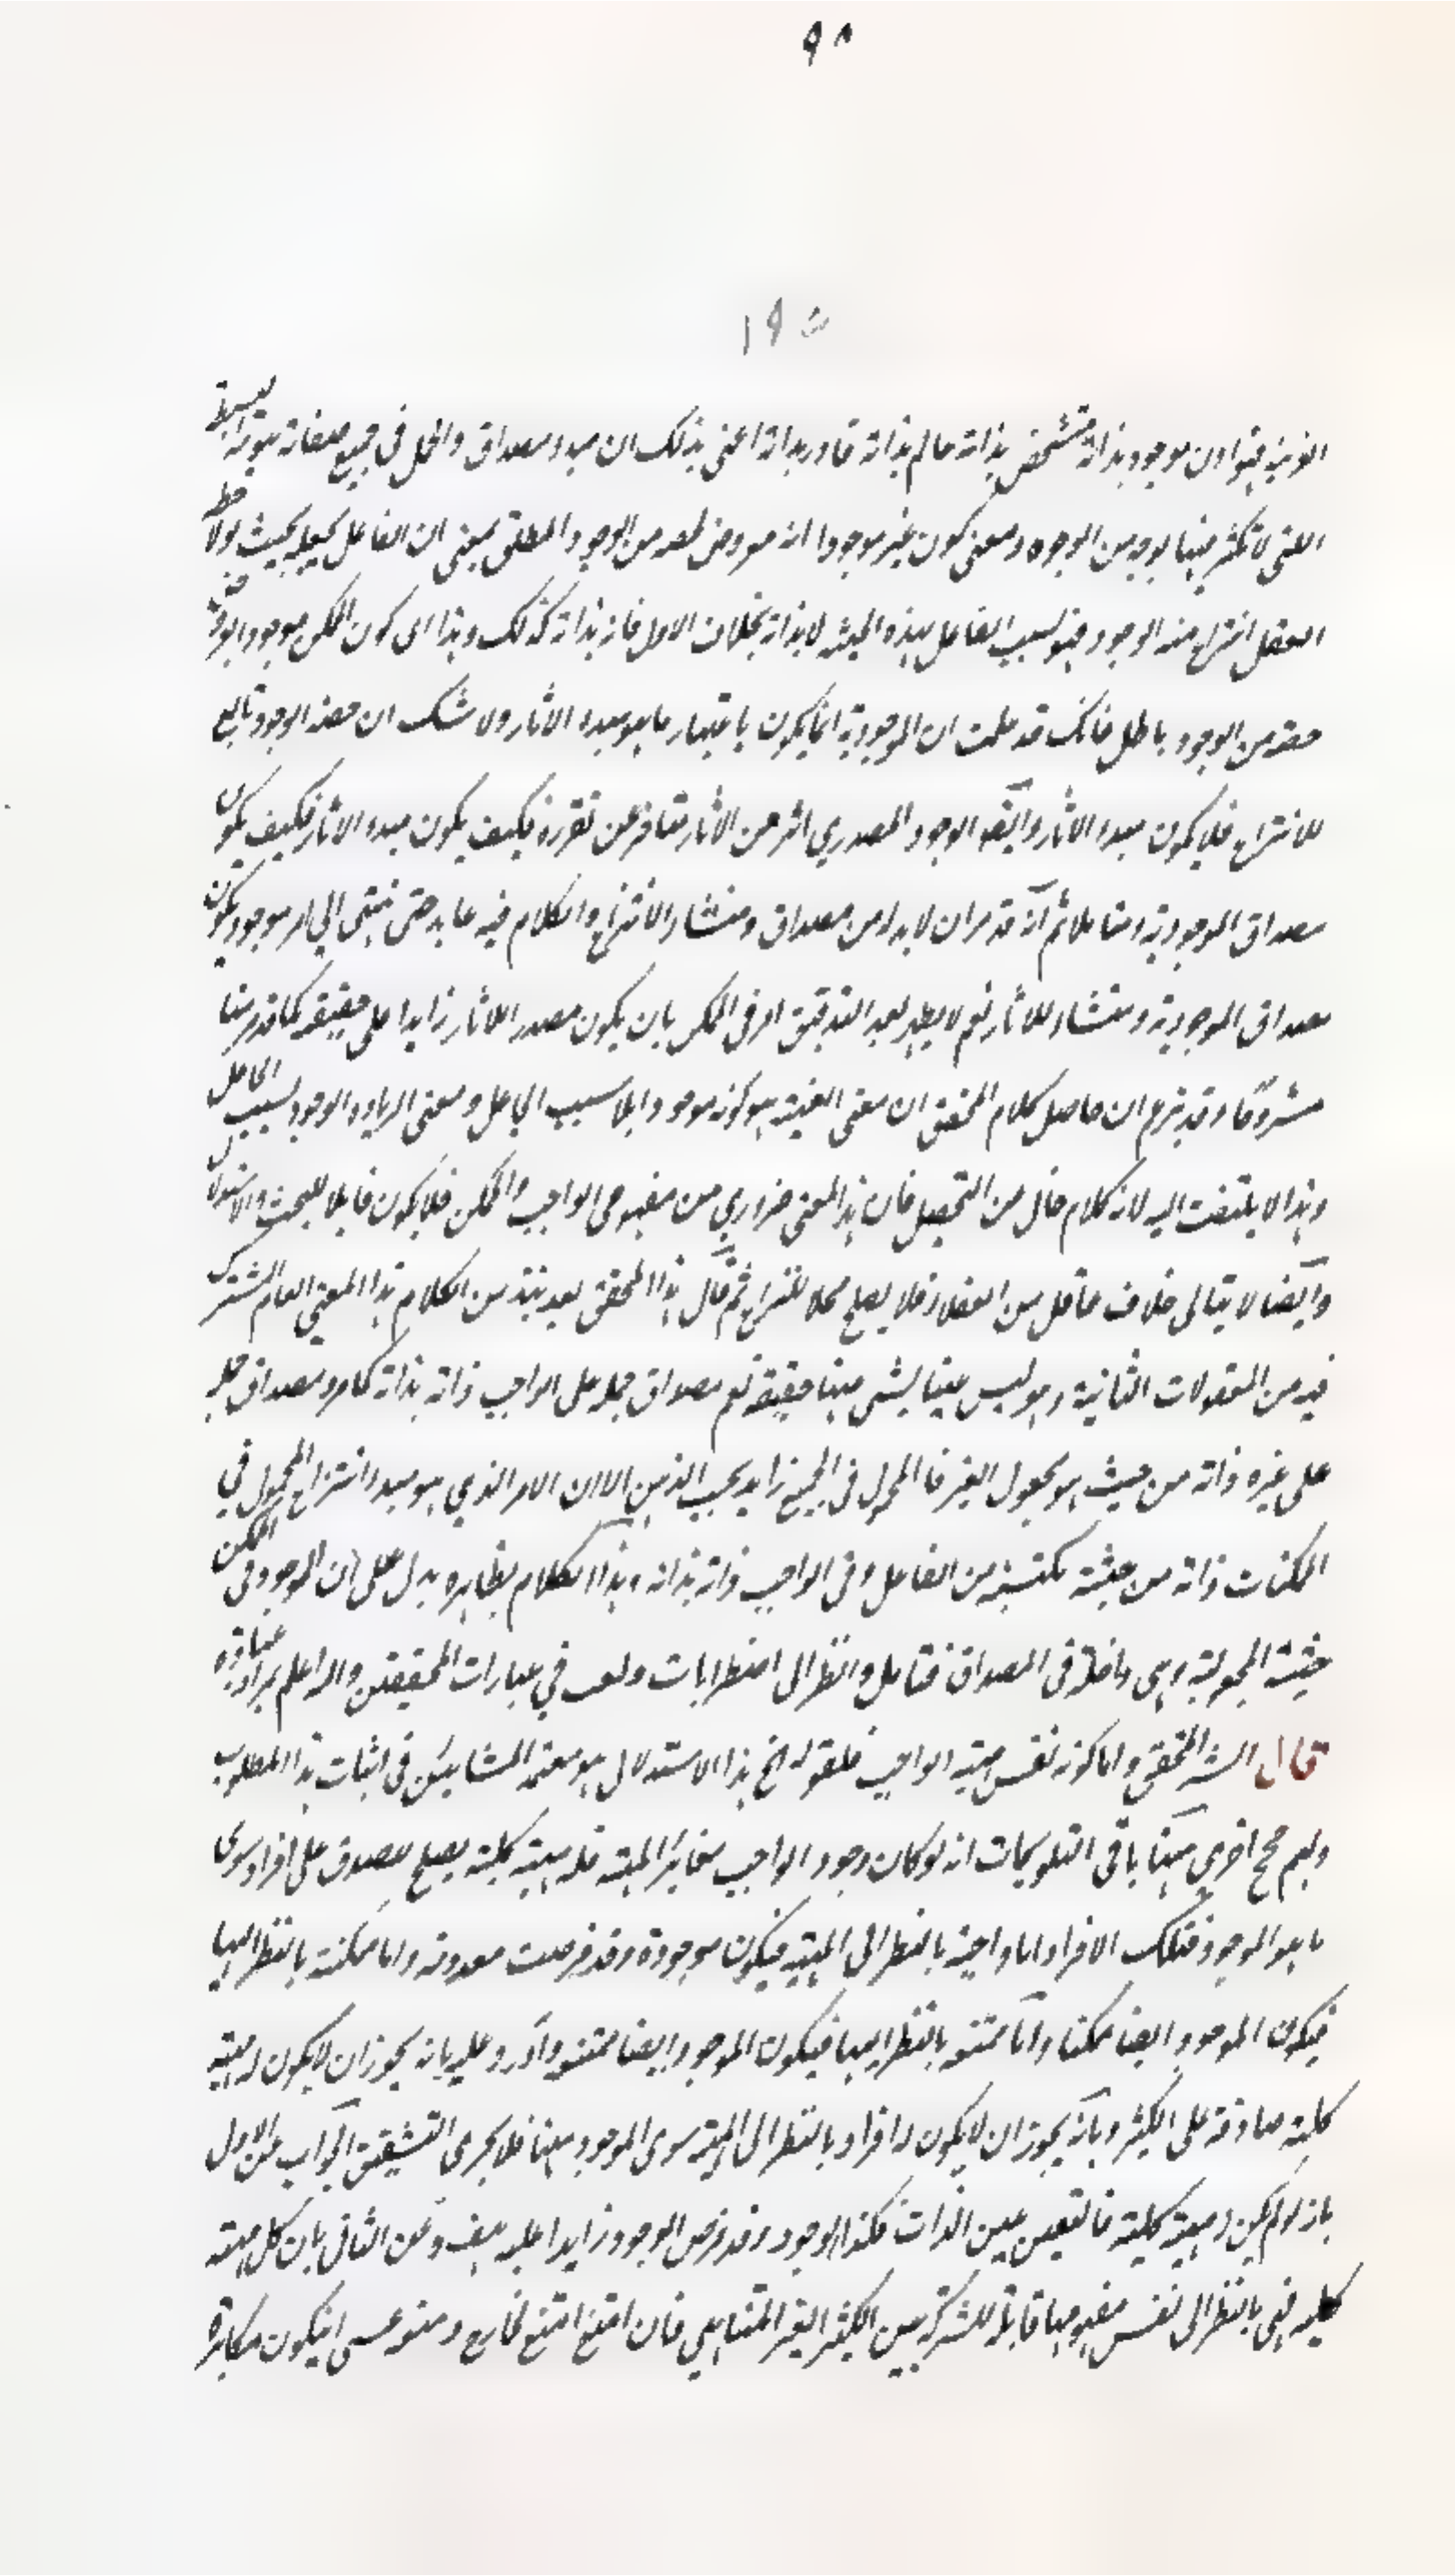 ٩٨
١٩٥
الغيرية فهو اذن موجود بذاته متشخص بذاته عالم بذاته قادر بذاته اعنى بذلك ان مبدء مصداق والحمل في جميع صفاته هويته البسيطة
اللتى لا تكثر فيها بوجه من الوجوه ومعنى كون غيره موجودا انه معروض لحصة من الوجود المطلق بمعنى ان الفاعل يجعله بحيث لو لاحظه
العقل انتزع منه الوجود فهو بسبب الفاعل بهذه الحيثية لا بذاته بخلاف الاول فانه بذاته كذلك وهذا اى كون الممكن موجودا
حصة من الوجود باطل فانك قد علمت ان الموجودية انما يكون باعتبار ما هو مبدء الاثار ولا شك ان حصة الوجود تابع
للانتزاع فلا يكون مبدء الاثار وايضا الوجود المصدري اثر من الاثار متاخر عن تقرره فكيف يكون مبدء الاثار فكيف يكون
مصداق الموجودية ومتاملا ثم انه قد مر ان لا بد له من مصداق ومنشاء الانتزاع والكلام فيه عايد حتى ينتهى الى امر موجود يكون
مصداق الموجودية ومنشاء للاثار نعم لا يظهر بعد التدقيق امر فى الممكن بان يكون مصدر الاثار زايدا على حقيقته كما قد مر منا
مشروحا وقد يزعم ان حاصل كلام المحقق ان معنى العينية هو كونه موجودا بلا سبب الجاعل ومعنى الزيادة الوجود بسبب الجاعل
وهذا لا يلتفت اليه لانه كلام خال من التحصيل فان هذا المعنى ضروري من مفهومى الواجب والممكن فلا يكون قابلا للبحث والاستدلال
وايضا لا يتاتى خلاف عاقل من العقلاء فلا يصلح محلا للنزاع ثم قال هذا المحقق بعد نبذ من الكلام هذا المعنى العام المشترك
فيه من المعقولات الثانية وهو ليس عينا لشى منها حقيقة نعم مصداق حمله على الواجب ذاته بذاته كما مر ومصداق حمله
على غيره ذاته من حيث هو مجعول الغير فالمحمول فى الجميع زايد بحسب الذهن الا ان الامر الذي هو مبدء انتزاع المحمول في
الممكنات ذاته من حيثية مكتسبة من الفاعل وفى الواجب ذاته بذاته وهذا الكلام بظاهره يدل على ان الموجود فى الممكن
حيثية المجعولية وهى داخلة فى المصداق فتامل وانظر الى اضطرابات وقعت في عبارات المحققين والله اعلم بمراد عباده
قال الشه المحقق واما كونه نفس مهية الواجب فلقوله الخ هذا الاستدلال هو معتمد المشائيين فى اثبات هذا المطلوب
ولهم حجج اخرى منها ما فى التلويحات انه لو كان وجود الواجب مغايرا للمهية فله مهية كلية يصلح يصدق على افراد سوى
ما هو الموجود فتلك الافراد اما واجبة بالنظر الى المهية فيكون موجودة وقد فرضت معدومة واما ممكنة بالنظر اليها
فيكون الموجود ايضا ممكنا واما ممتنعة بالنظر اليها فيكون الموجود ايضا ممتنع واورد عليه بانه يجوز ان لا يكون له مهية
كلية صادقة على الكثير وبانه يجوز ان لا يكون له افراد بالنظر الى المهية سوى الموجود منها فلا يجرى التشقيق الجواب عن الاول
بانه لو لم يكن له مهية كلية فالتعين عين الذات فكذا الوجود وقد فرض الوجود زايدا عليه هف وعن الثانى بان كل مهية
كلية فهى بالنظر الى نفس مفهومها قابلة للشركة بين الكثير الغير المتناهي فان امتنع امتنع لخارج ومنعه عسى ان يكون مكابرة